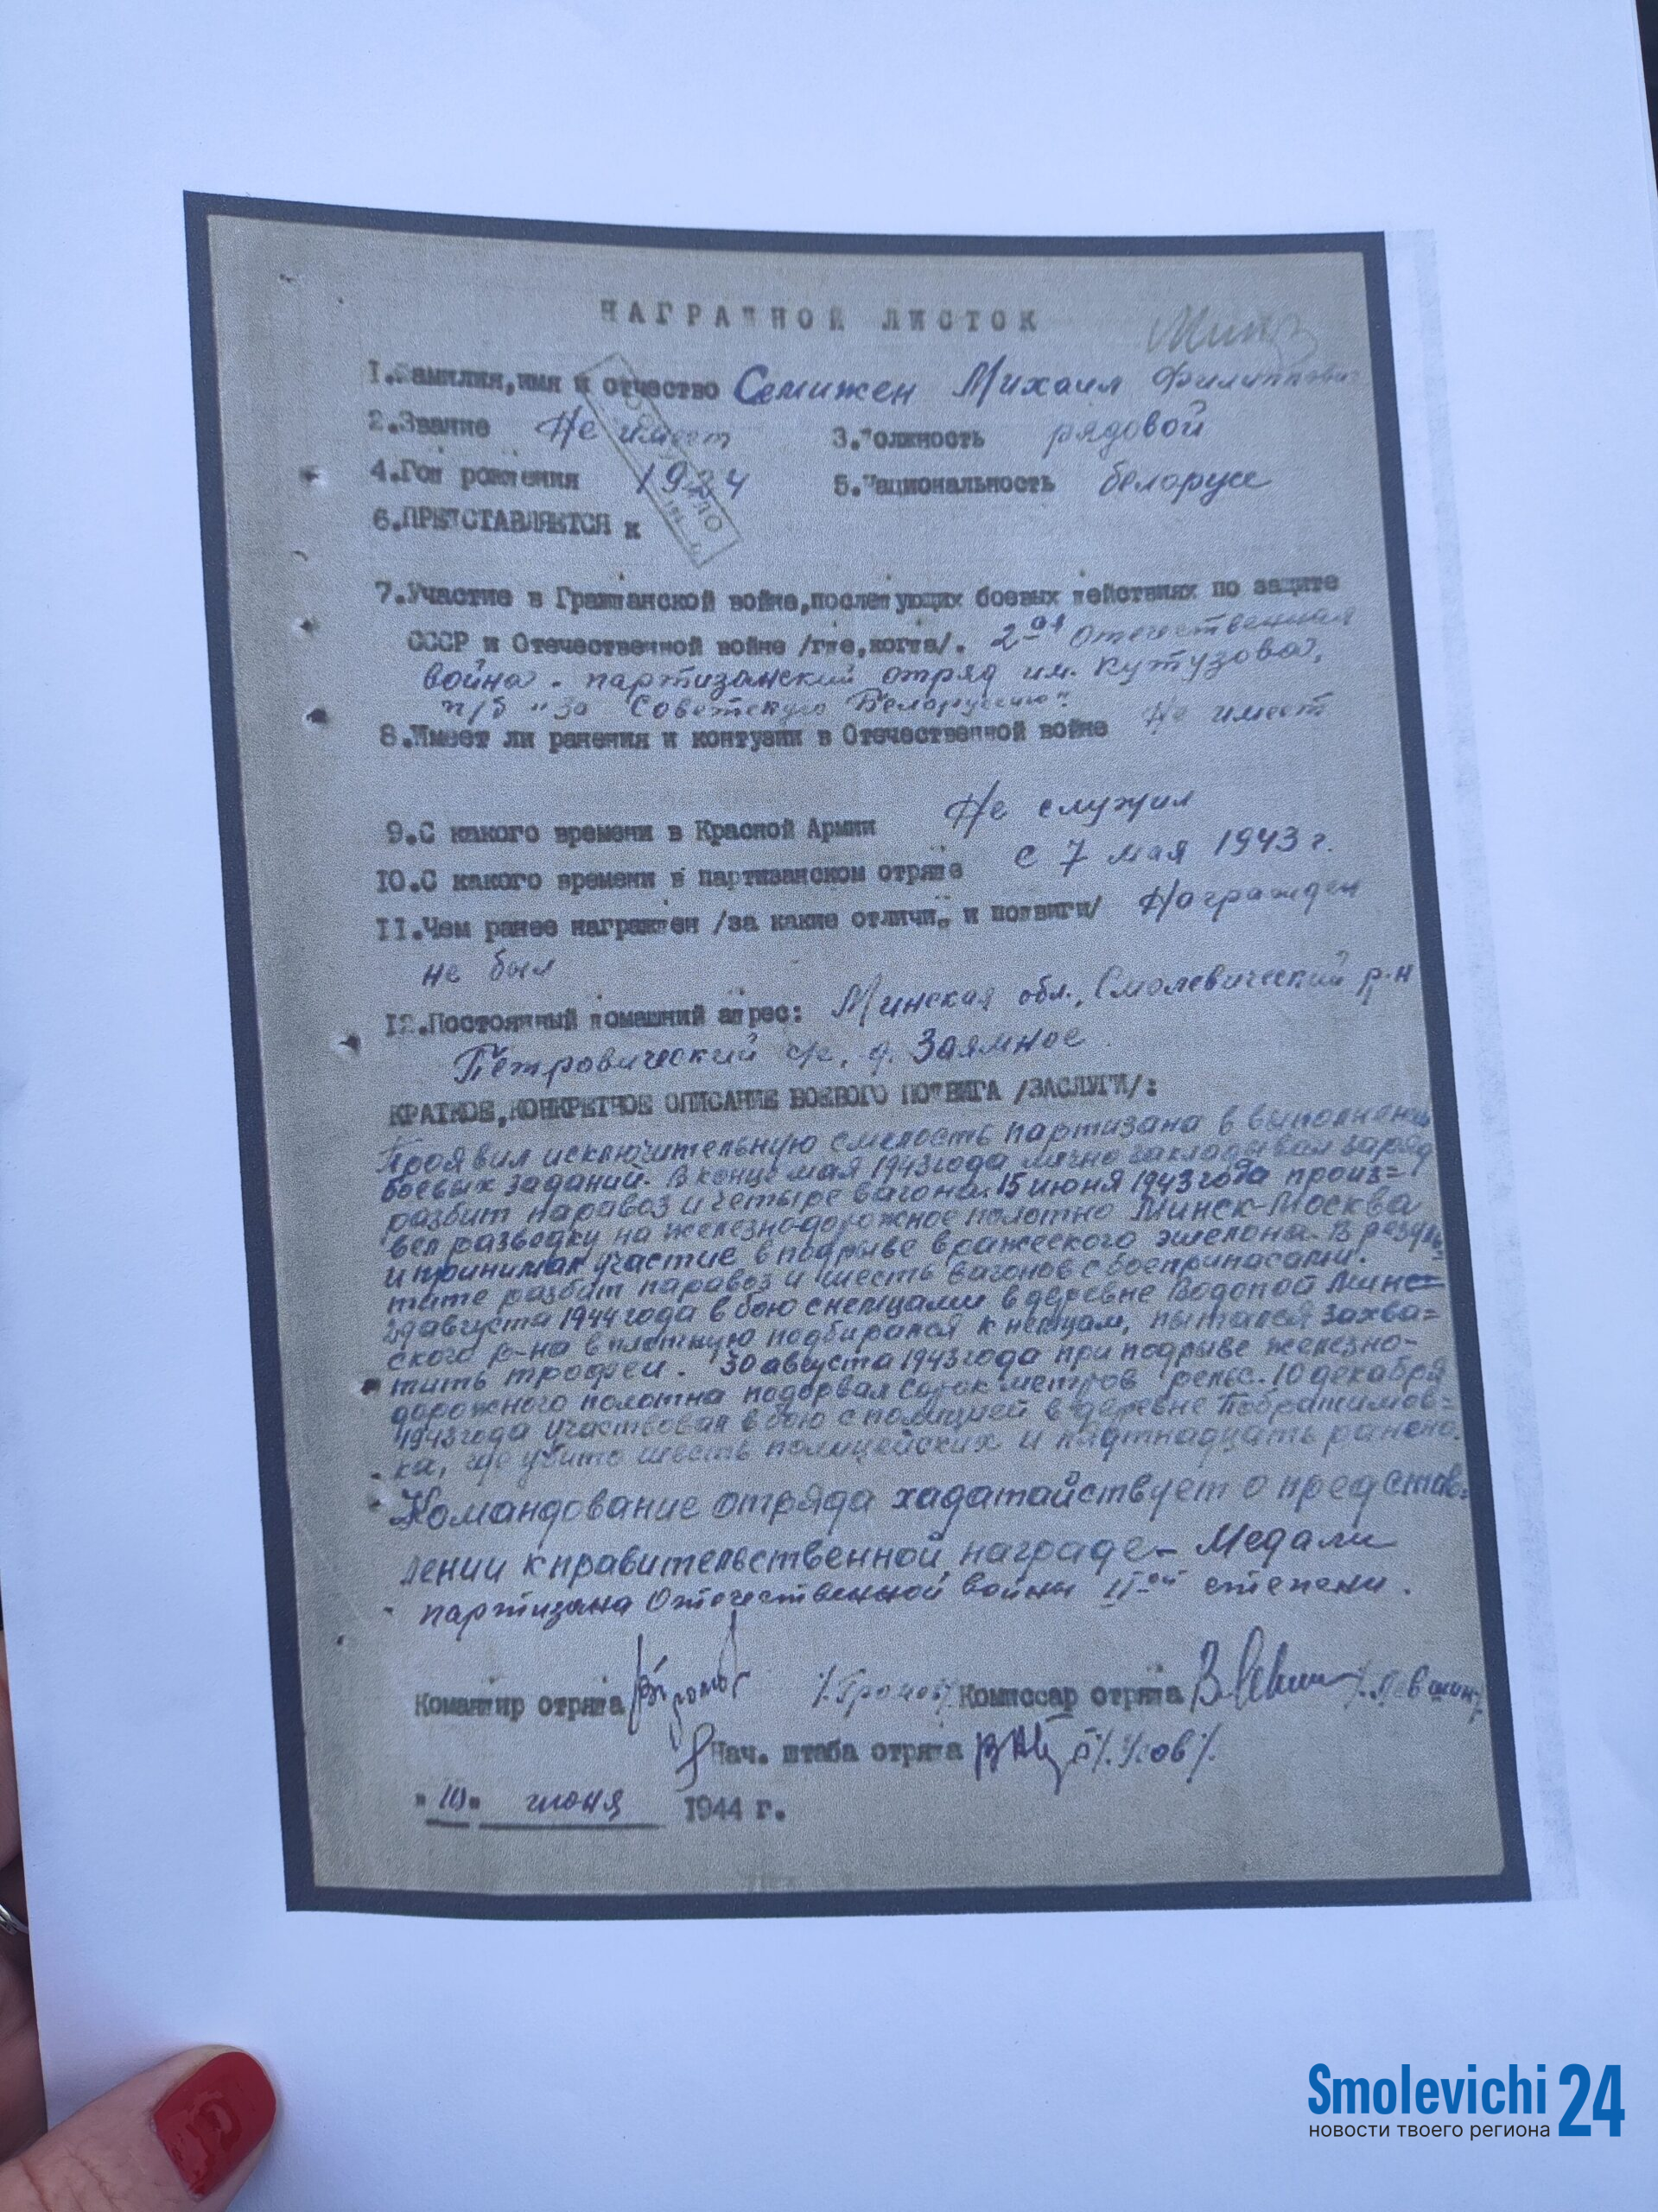 НАГРАДНОЙ ЛИСТОК
1.Фамилия,имя и отчество Семижен Михаил Филиппович
2.Звание Не имеет 3.Должность рядовой
4.Год рождения 1924 5.Национальность белорусс
6.ПРЕДСТАВЛЯЕТСЯ к
7.Участие в Гражданской войне,последующих боевых действиях по защите
СССР и Отечественной войне /где,когда/. 2-ая Отечественная
война. партизанский отряд им. Кутузова,
п/б "За Советскую Белоруссию".
8.Имеет ли ранения и контузии в Отечественной войне Не имеет
9.С какого времени в Красной Армии Не служил
10.С какого времени в партизанском отряде с 7 мая 1943 г.
11.Чем ранее награжден /за какие отличия и подвиги/ Награжден
не был
12.Постоянный домашний адрес: Минская обл., Смолевический р-н
Петровический с/с, д. Заямное
КРАТКОЕ,КОНКРЕТНОЕ ОПИСАНИЕ БОЕВОГО ПОДВИГА /ЗАСЛУГИ/:
Проявил исключительную смелость партизана в выполнении
боевых заданий. В конце мая 1943 года лично закладывал заряд
разбит паравоз и четыре вагона. 15 июня 1943 года произ=
вел разведку на железно-дорожное полотно Минск-Москва
и принимал участие в подрыве вражеского эшелона. В резуль=
тате разбит паравоз и шесть вагонов с боеприпасами.
августа 1944 года в бою с немцами в деревне Водопой Минс=
ского р-на в плотную подбирался к немцам, пытался захва=
тить трофеи. 30 августа 1943 года при подрыве железно-
дорожного полотна подорвал сорок метров рельс. 10 декабря
1943 года участвовал в бою с полицией в деревне Побратимов=
ка, где убито шесть полицейских и пятнадцать ранено.
Командование отряда хадатайствует о представ=
лении к правительственной награде - Медали
партизана Отечественной войны II-ой степени.
Командир отряда /Громов/ Комиссар отряда /Левшин/
Нач. штаба отряда /Усов/
"10" июня 1944 г.
Smolevichi 24
новости твоего региона